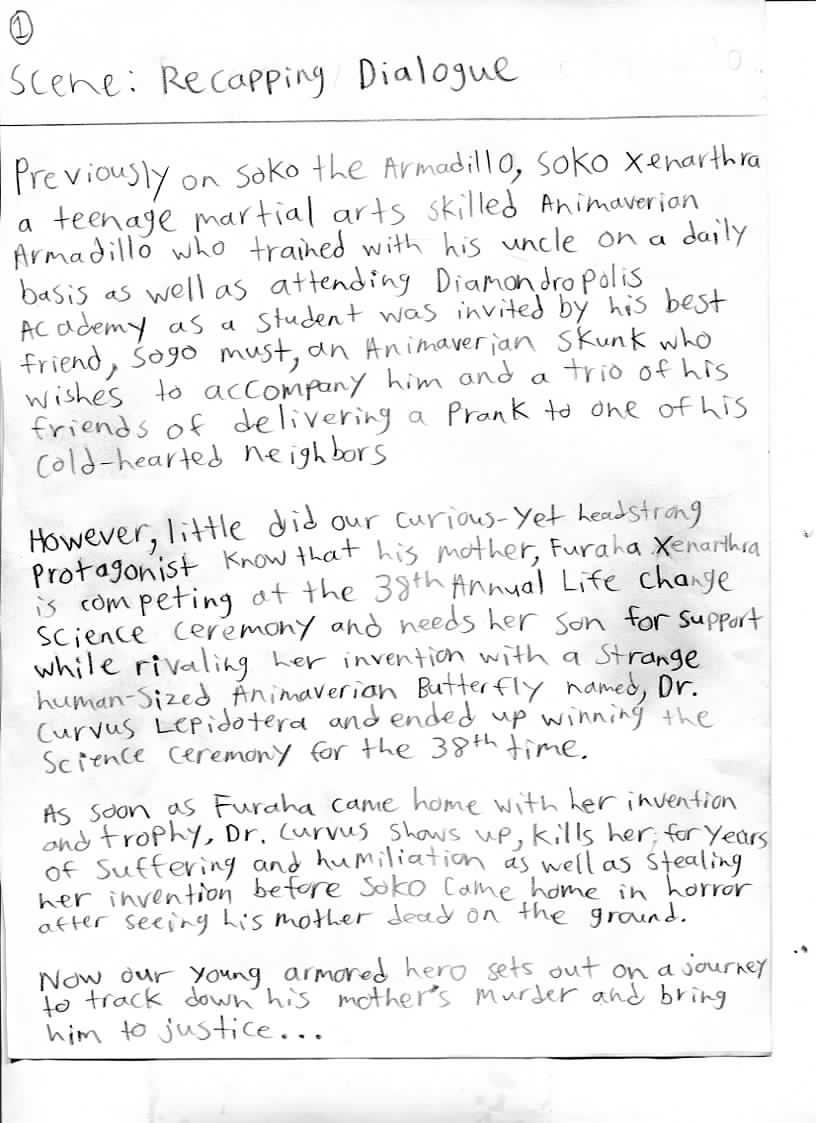 1
Scene: Recapping Dialogue
Previously on Soko the Armadillo, Soko Xenarthra
a teenage martial arts skilled Animaverian
Armadillo who trained with his uncle on a daily
basis as well as attending Diamondropolis
Academy as a student was invited by his best
friend, Sogo must, an Animaverian Skunk who
wishes to accompany him and a trio of his
friends of delivering a Prank to one of his
cold-hearted neighbors
However, little did our curious-yet headstrong
Protagonist know that his mother, Furaha Xenarthra
is competing at the 38th Annual Life Change
Science Ceremony and needs her son for support
while rivaling her invention with a Strange
human-sized Animaverian Butterfly named, Dr.
Curvus Lepidotera and ended up winning the
Science Ceremony for the 38th time.
As soon as Furaha came home with her invention
and trophy, Dr. Curvus shows up, kills her, for years
of suffering and humiliation as well as stealing
her invention before Soko came home in horror
after seeing his mother dead on the ground.
Now our young armored hero sets out on a journey
to track down his mother's murder and bring
him to justice...